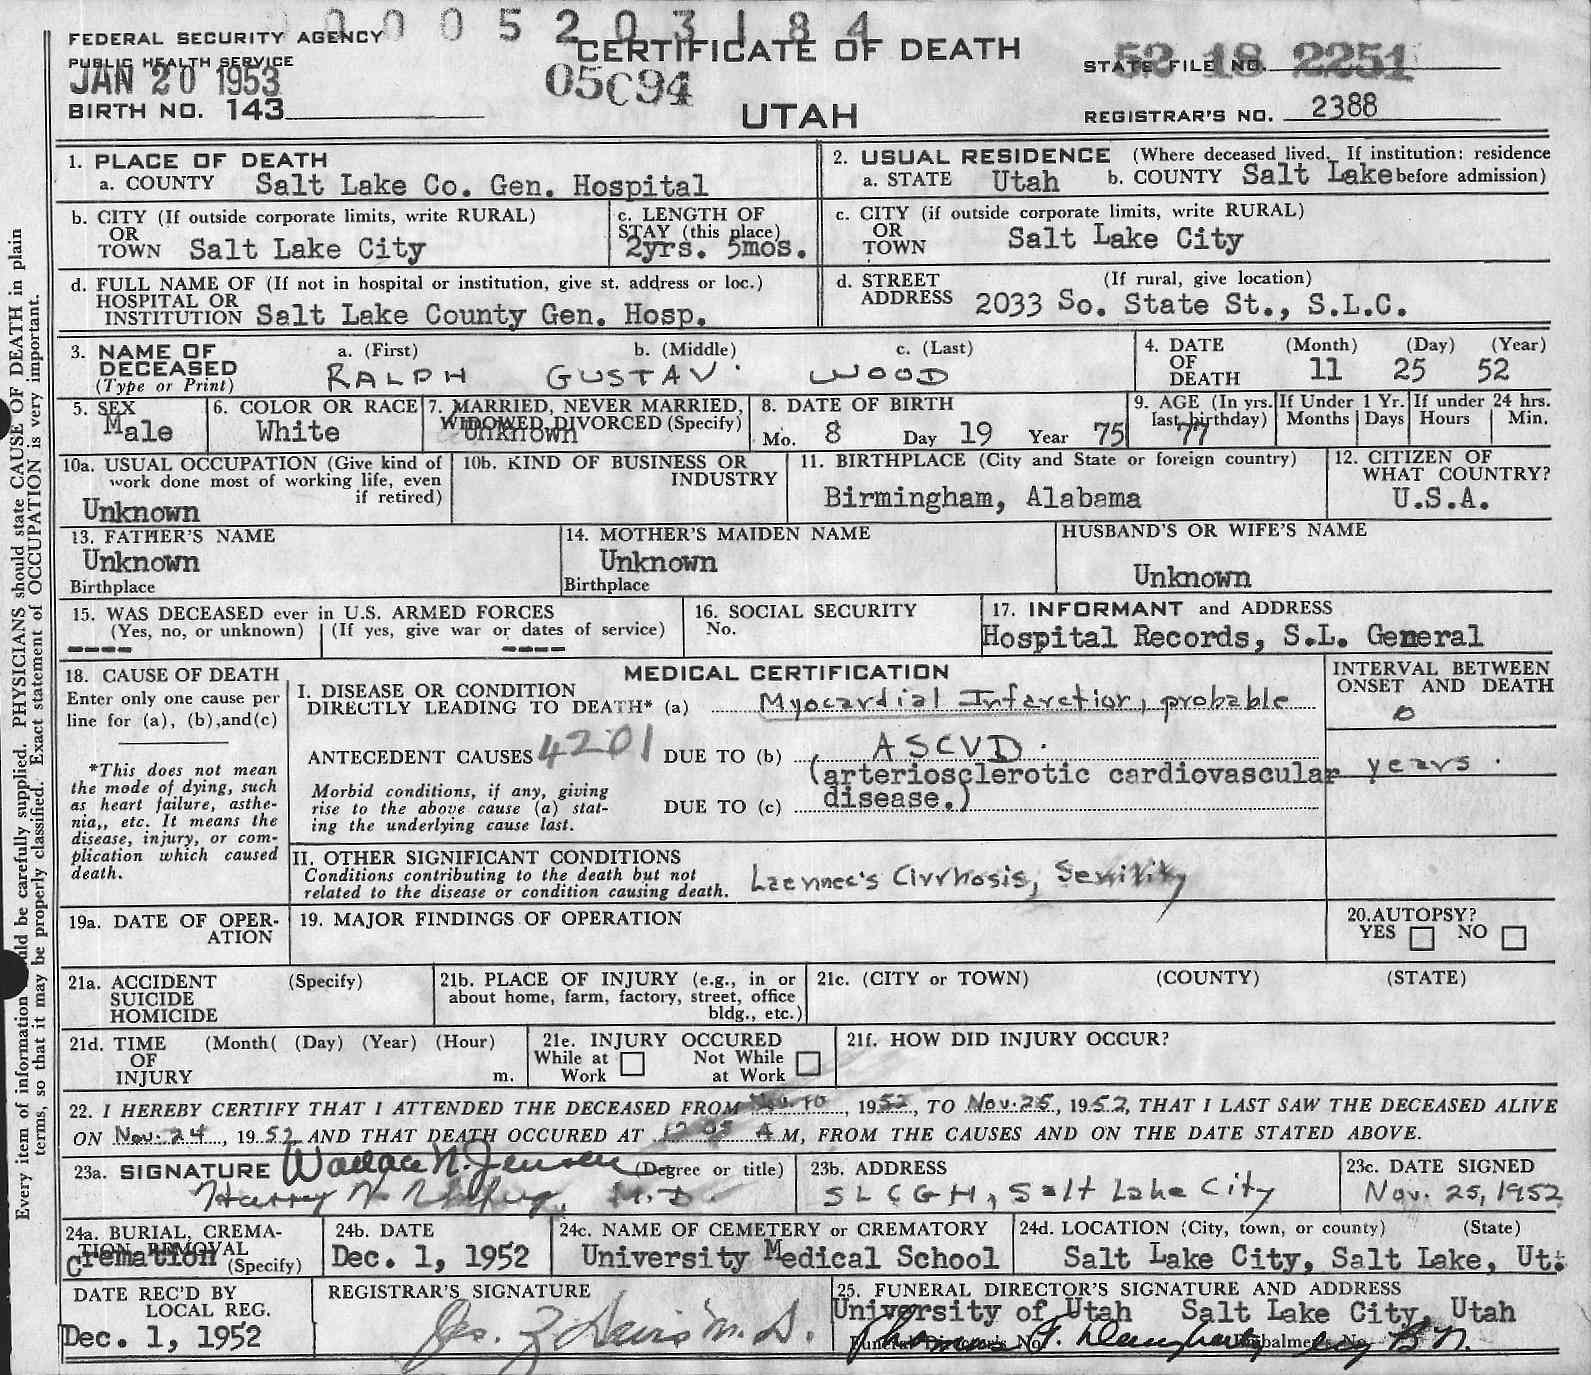 0005203184
FEDERAL SECURITY AGENCY
PUBLIC HEALTH SERVICE
JAN 20 1953
BIRTH NO. 143
CERTIFICATE OF DEATH
05C94
UTAH
STATE FILE NO. 52 18 2251
REGISTRAR'S NO. 2388
Every item of information should be carefully supplied. PHYSICIANS should state CAUSE OF DEATH in plain
terms, so that it may be properly classified. Exact statement of OCCUPATION is very important.
1. PLACE OF DEATH
a. COUNTY Salt Lake Co. Gen. Hospital
2. USUAL RESIDENCE (Where deceased lived. If institution: residence
a. STATE Utah b. COUNTY Salt Lake before admission)
b. CITY (If outside corporate limits, write RURAL)
OR
TOWN Salt Lake City
c. LENGTH OF
STAY (this place)
2yrs. 5mos.
c. CITY (if outside corporate limits, write RURAL)
OR
TOWN Salt Lake City
d. FULL NAME OF (If not in hospital or institution, give st. address or loc.)
HOSPITAL OR
INSTITUTION Salt Lake County Gen. Hosp.
d. STREET (If rural, give location)
ADDRESS 2033 So. State St., S.L.C.
3. NAME OF
DECEASED
(Type or Print)
a. (First) b. (Middle) c. (Last)
RALPH GUSTAV WOOD
4. DATE
OF
DEATH
(Month) (Day) (Year)
11 25 52
5. SEX
Male
6. COLOR OR RACE
White
7. MARRIED, NEVER MARRIED,
WIDOWED DIVORCED (Specify)
Unknown
8. DATE OF BIRTH
Mo. 8 Day 19 Year 75
9. AGE (In yrs.
last birthday)
77
If Under 1 Yr.
Months Days
If under 24 hrs.
Hours Min.
10a. USUAL OCCUPATION (Give kind of
work done most of working life, even
if retired)
Unknown
10b. KIND OF BUSINESS OR
INDUSTRY
11. BIRTHPLACE (City and State or foreign country)
Birmingham, Alabama
12. CITIZEN OF
WHAT COUNTRY?
U.S.A.
13. FATHER'S NAME
Unknown
Birthplace
14. MOTHER'S MAIDEN NAME
Unknown
Birthplace
HUSBAND'S OR WIFE'S NAME
Unknown
15. WAS DECEASED ever in U.S. ARMED FORCES
(Yes, no, or unknown) (If yes, give war or dates of service)
---- ----
16. SOCIAL SECURITY
No.
17. INFORMANT and ADDRESS
Hospital Records, S.L. General
18. CAUSE OF DEATH
Enter only one cause per
line for (a), (b),and(c)
*This does not mean
the mode of dying, such
as heart failure, asthe-
nia,, etc. It means the
disease, injury, or com-
plication which caused
death.
MEDICAL CERTIFICATION
I. DISEASE OR CONDITION
DIRECTLY LEADING TO DEATH* (a) Myocardial Infarction, probable
ANTECEDENT CAUSES 4201 DUE TO (b) ASCVD.
(arteriosclerotic cardiovascular
Morbid conditions, if any, giving
rise to the above cause (a) stat-
ing the underlying cause last.
DUE TO (c) disease.)
INTERVAL BETWEEN
ONSET AND DEATH
0
years.
II. OTHER SIGNIFICANT CONDITIONS
Conditions contributing to the death but not
related to the disease or condition causing death. Laennec's Cirrhosis, Senility
19a. DATE OF OPER-
ATION
19. MAJOR FINDINGS OF OPERATION
20.AUTOPSY?
YES NO
21a. ACCIDENT (Specify)
SUICIDE
HOMICIDE
21b. PLACE OF INJURY (e.g., in or
about home, farm, factory, street, office
bldg., etc.)
21c. (CITY or TOWN) (COUNTY) (STATE)
21d. TIME (Month( (Day) (Year) (Hour)
OF
INJURY m.
21e. INJURY OCCURED
While at Not While
Work at Work
21f. HOW DID INJURY OCCUR?
22. I HEREBY CERTIFY THAT I ATTENDED THE DECEASED FROM Nov. 10, 1952, TO Nov. 25, 1952, THAT I LAST SAW THE DECEASED ALIVE
ON Nov. 24, 1952 AND THAT DEATH OCCURED AT 12 05 A M, FROM THE CAUSES AND ON THE DATE STATED ABOVE.
23a. SIGNATURE Wallace N. Jensen (Degree or title)
Harry M.D.
23b. ADDRESS
SLCGH, Salt Lake City
23c. DATE SIGNED
Nov. 25, 1952
24a. BURIAL, CREMA-
TION REMOVAL
Cremation (Specify)
24b. DATE
Dec. 1, 1952
24c. NAME OF CEMETERY or CREMATORY
University Medical School
24d. LOCATION (City, town, or county) (State)
Salt Lake City, Salt Lake, Ut.
DATE REC'D BY
LOCAL REG.
Dec. 1, 1952
REGISTRAR'S SIGNATURE
M.D.
25. FUNERAL DIRECTOR'S SIGNATURE AND ADDRESS
University of Utah Salt Lake City, Utah
Funeral Director's No. Embalmer's No.